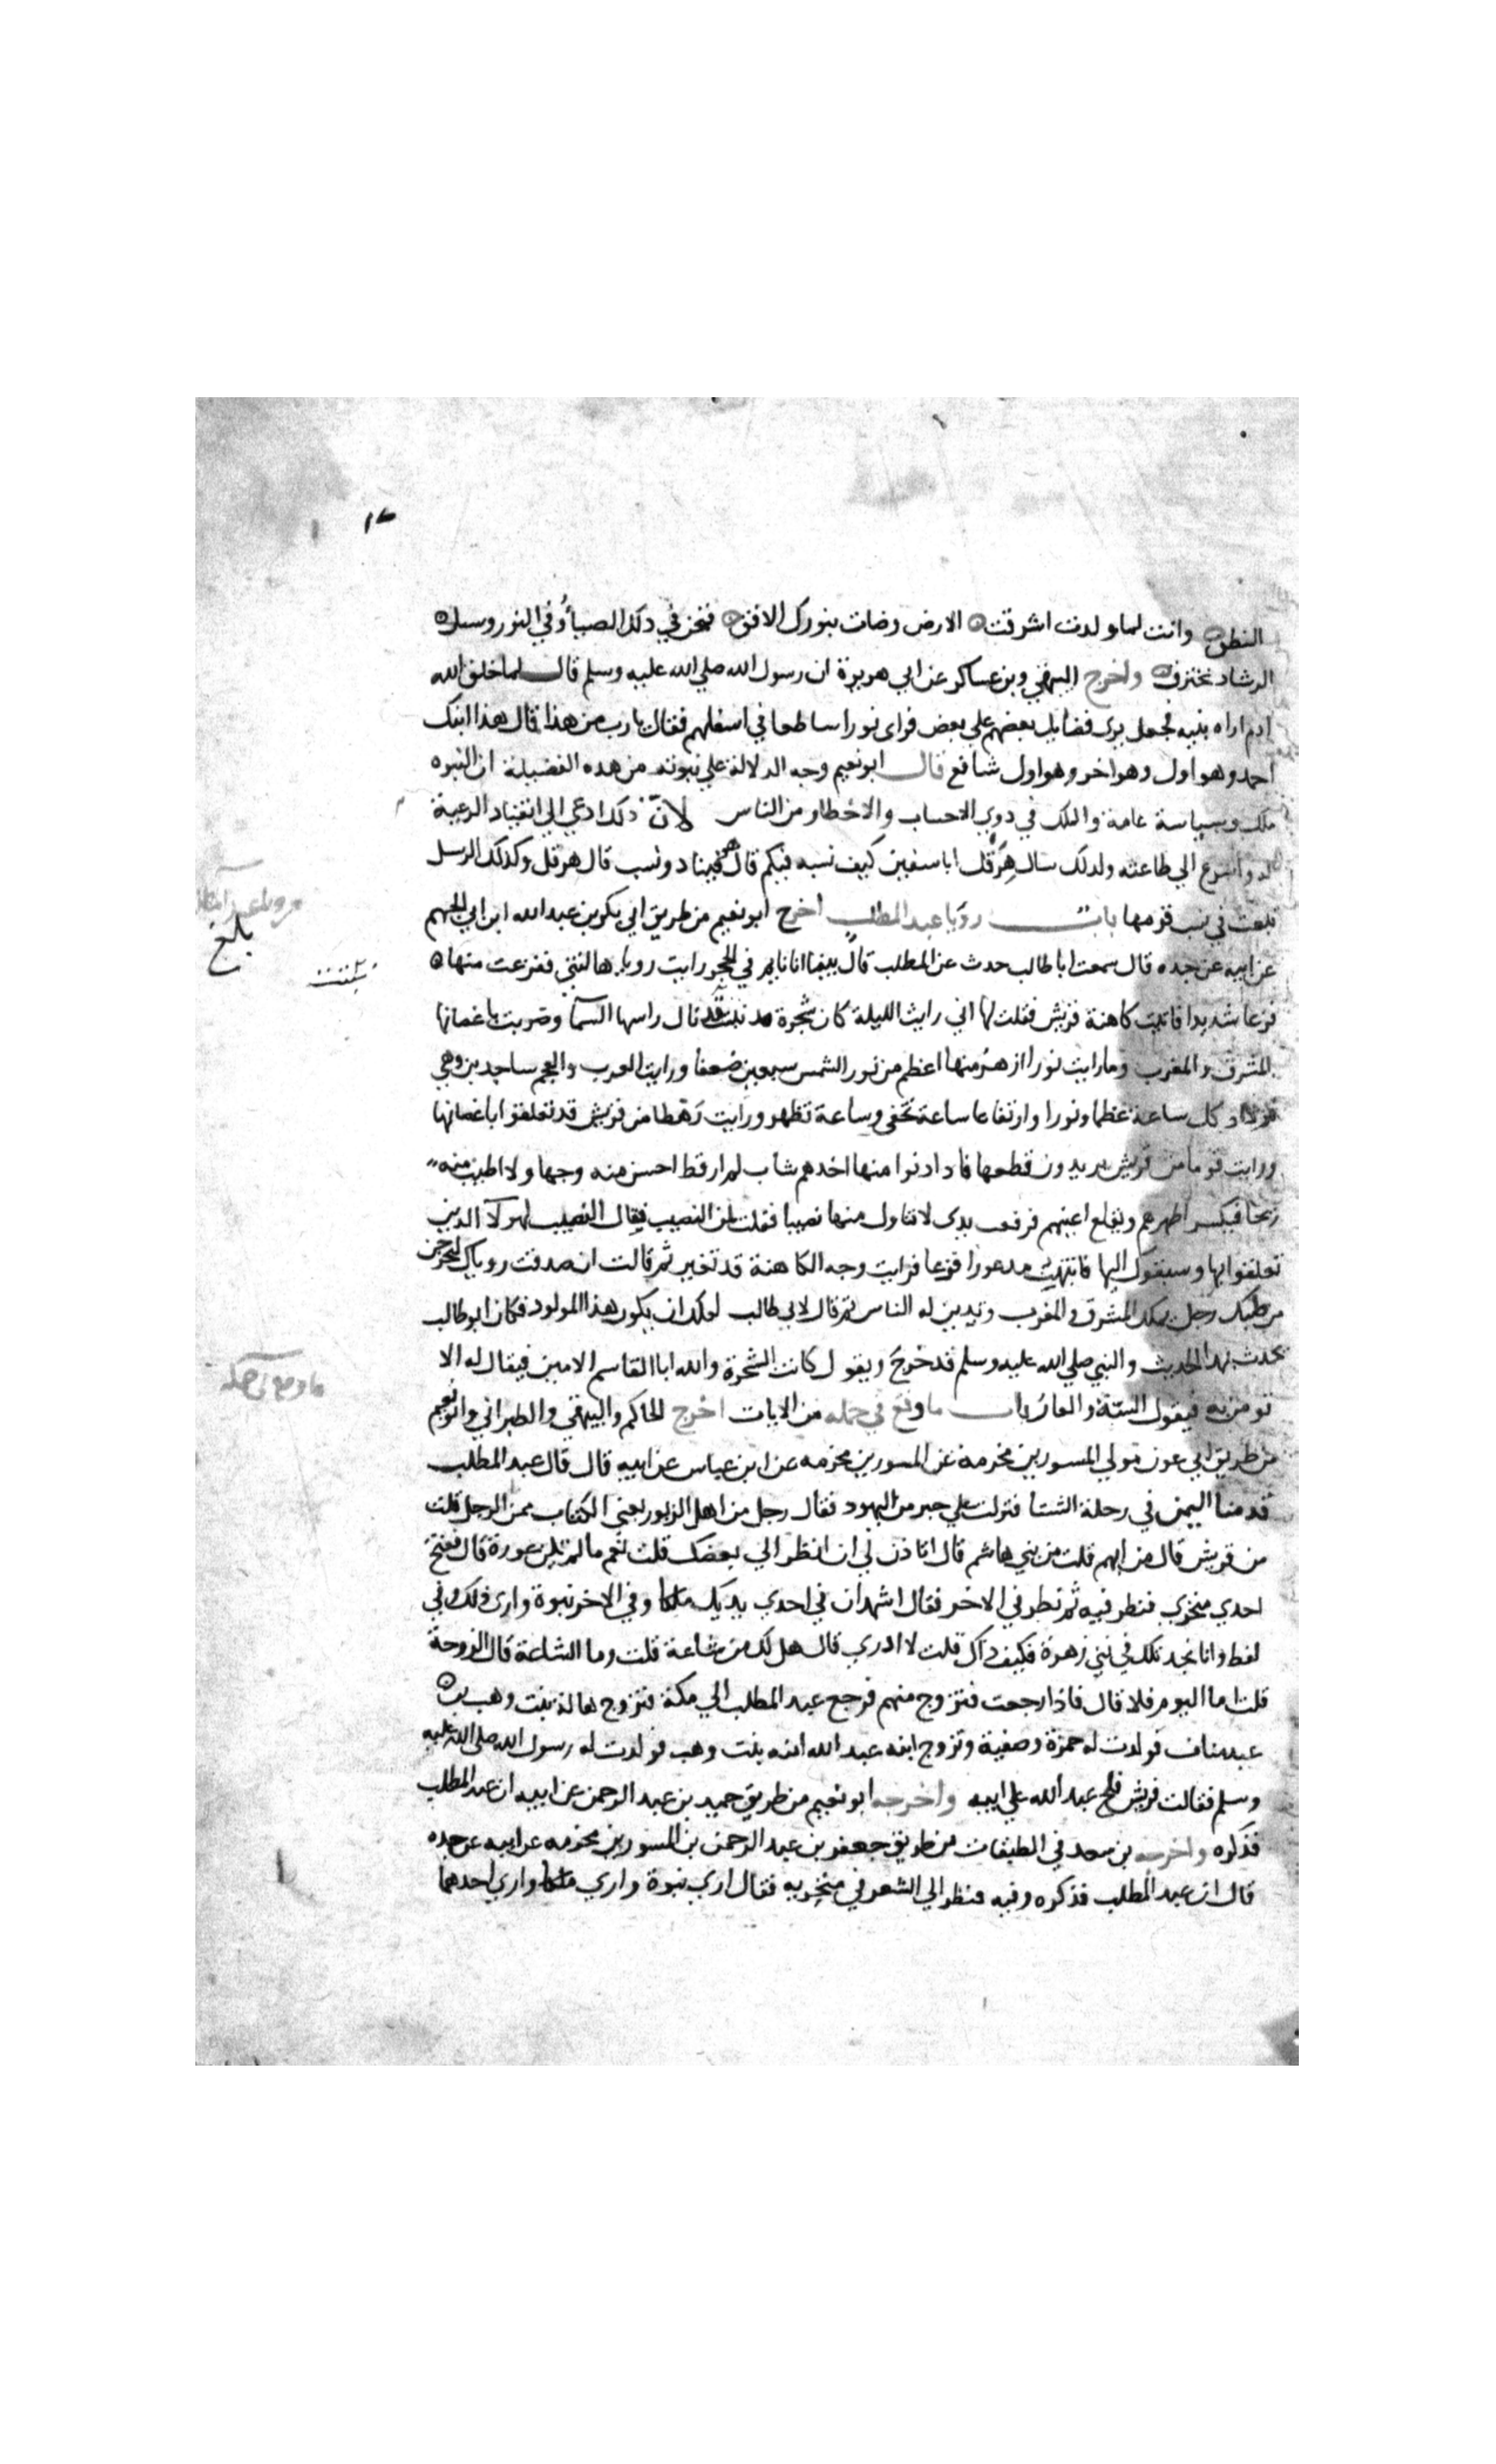 النطق وانت لما ولدت اشرقت الارض وضات بنورك الافق فنحن في ذلك الضياء وفي النور وسبل
الرشاد نخترق واخرج البيهقي وبن عساكر عن ابي هريرة ان رسول الله صلي الله عليه وسلم قال لما خلق الله
ادم اراه بنيه فجعل يري فضايل بعضهم علي بعض فراي نورا ساطعا في اسفلهم فقال يا رب من هذا قال هذا ابنك
احمد وهو اول وهو اخر وهو اول شافع قال ابو نعيم وجه الدلالة علي نبوته من هذه الفضيلة ان النبوه
ملك وسياسة عامة والملك في ذوي الاحساب والاخطار من الناس لان ذلك ادعي الي انقياد الرعية
له واسرع الي طاعته ولذلك سال هرقل ابا سفين كيف نسبه فيكم قال هو فينا ذو نسب قال هرقل وكذلك الرسل
تبعث في نسب قومها باب رويا عبد المطلب اخرج ابو نعيم من طريق ابي بكر بن عبد الله ابن ابي الجهم
عن ابيه عن جده قال سمعت ابا طالب حدث عن المطلب قال بينما انا نايم في الحجر رايت رويا هالتني ففزعت منها
فزعا شديدا فاتيت كاهنة قريش فقلت لها اني رايت الليلة كان شجرة نبتت قد نال راسها السما وضربت باغصانها
المشرق والمغرب وما رايت نورا ازهر منها اعظم من نور الشمس سبعين ضعفا ورايت العرب والعجم ساجدين وهي
تزداد كل ساعة عظما ونورا وارتفاعا ساعة تخفي وساعة تظهر ورايت رهطا من قريش قد تعلقوا باغصانها
ورايت قوما من قريش يريدون قطعها فاذا دنوا منها اخذهم شاب لم ار قط احسن منه وجها ولا اطيب منه
ريحا فيكسر اظهرهم ويقلع اعينهم فرفعت يدي لاتناول منها نصيبا فقلت لمن النصيب فقال النصيب لهولا الذين
تعلقوا بها وسبقوك اليها فانتبهت مذعورا فزعا فرايت وجه الكاهنة قد تغير ثم قالت ان صدقت روياك ليخرجن
من صلبك رجل يملك المشرق والمغرب وتدين له الناس ثم قال لابي طالب لعلك ان يكون هذا المولود فكان ابو طالب
يحدث بهذا الحديث والنبي صلي الله عليه وسلم قد خرج ويقول كانت الشجرة والله ابا القاسم الامين فيقال له الا
تومن به فيقول السبة والعار باب ما وقع في حمله من الايات اخرج الحاكم والبيهقي والطبراني وابو نعيم
من طريق ابي عون مولي المسور بن مخرمة عن المسور بن مخرمه عن ابن عباس عن ابيه قال قال عبد المطلب
قدمنا اليمن في رحلة الشتا فنزلت علي حبر من اليهود فقال رجل من اهل الزبور يعني الكتاب ممن الرجل قلت
من قريش قال من ايهم قلت من بني هاشم قال اتاذن لي ان انظر الي بعضك قلت نعم ما لم تكن عورة قال ففتح
احدي منخري فنظر فيه ثم نظر في الاخر فقال اشهد ان في احدي يديك ملكا وفي الاخر نبوة واري ذلك في
لفظ وانا نجد ذلك في بني زهرة فكيف ذاك قلت لا ادري قال هل لك من شاعة قلت وما الشاعة قال الزوجة
قلت اما اليوم فلا قال فاذا رجعت فتزوج منهم فرجع عبد المطلب الي مكة فتزوج هالة بنت وهب بن
عبد مناف فولدت له حمزة وصفية وتزوج ابنه عبد الله امنه بنت وهب فولدت له رسول الله صلي الله عليه
وسلم فقالت قريش فلج عبد الله علي ابيه واخرجه ابو نعيم من طريق حميد بن عبد الرحمن عن ابيه ان عبد المطلب
فذكره واخرجه بن سعد في الطبقات من طريق جعفر بن عبد الرحمن بن المسور بن مخرمه عن ابيه عن جده
قال ان عبد المطلب فذكره وفيه فنظر الي الشعر في منخريه فقال اري نبوة واري ملكا واري احدهما
بلغ
ما وقع في حمله